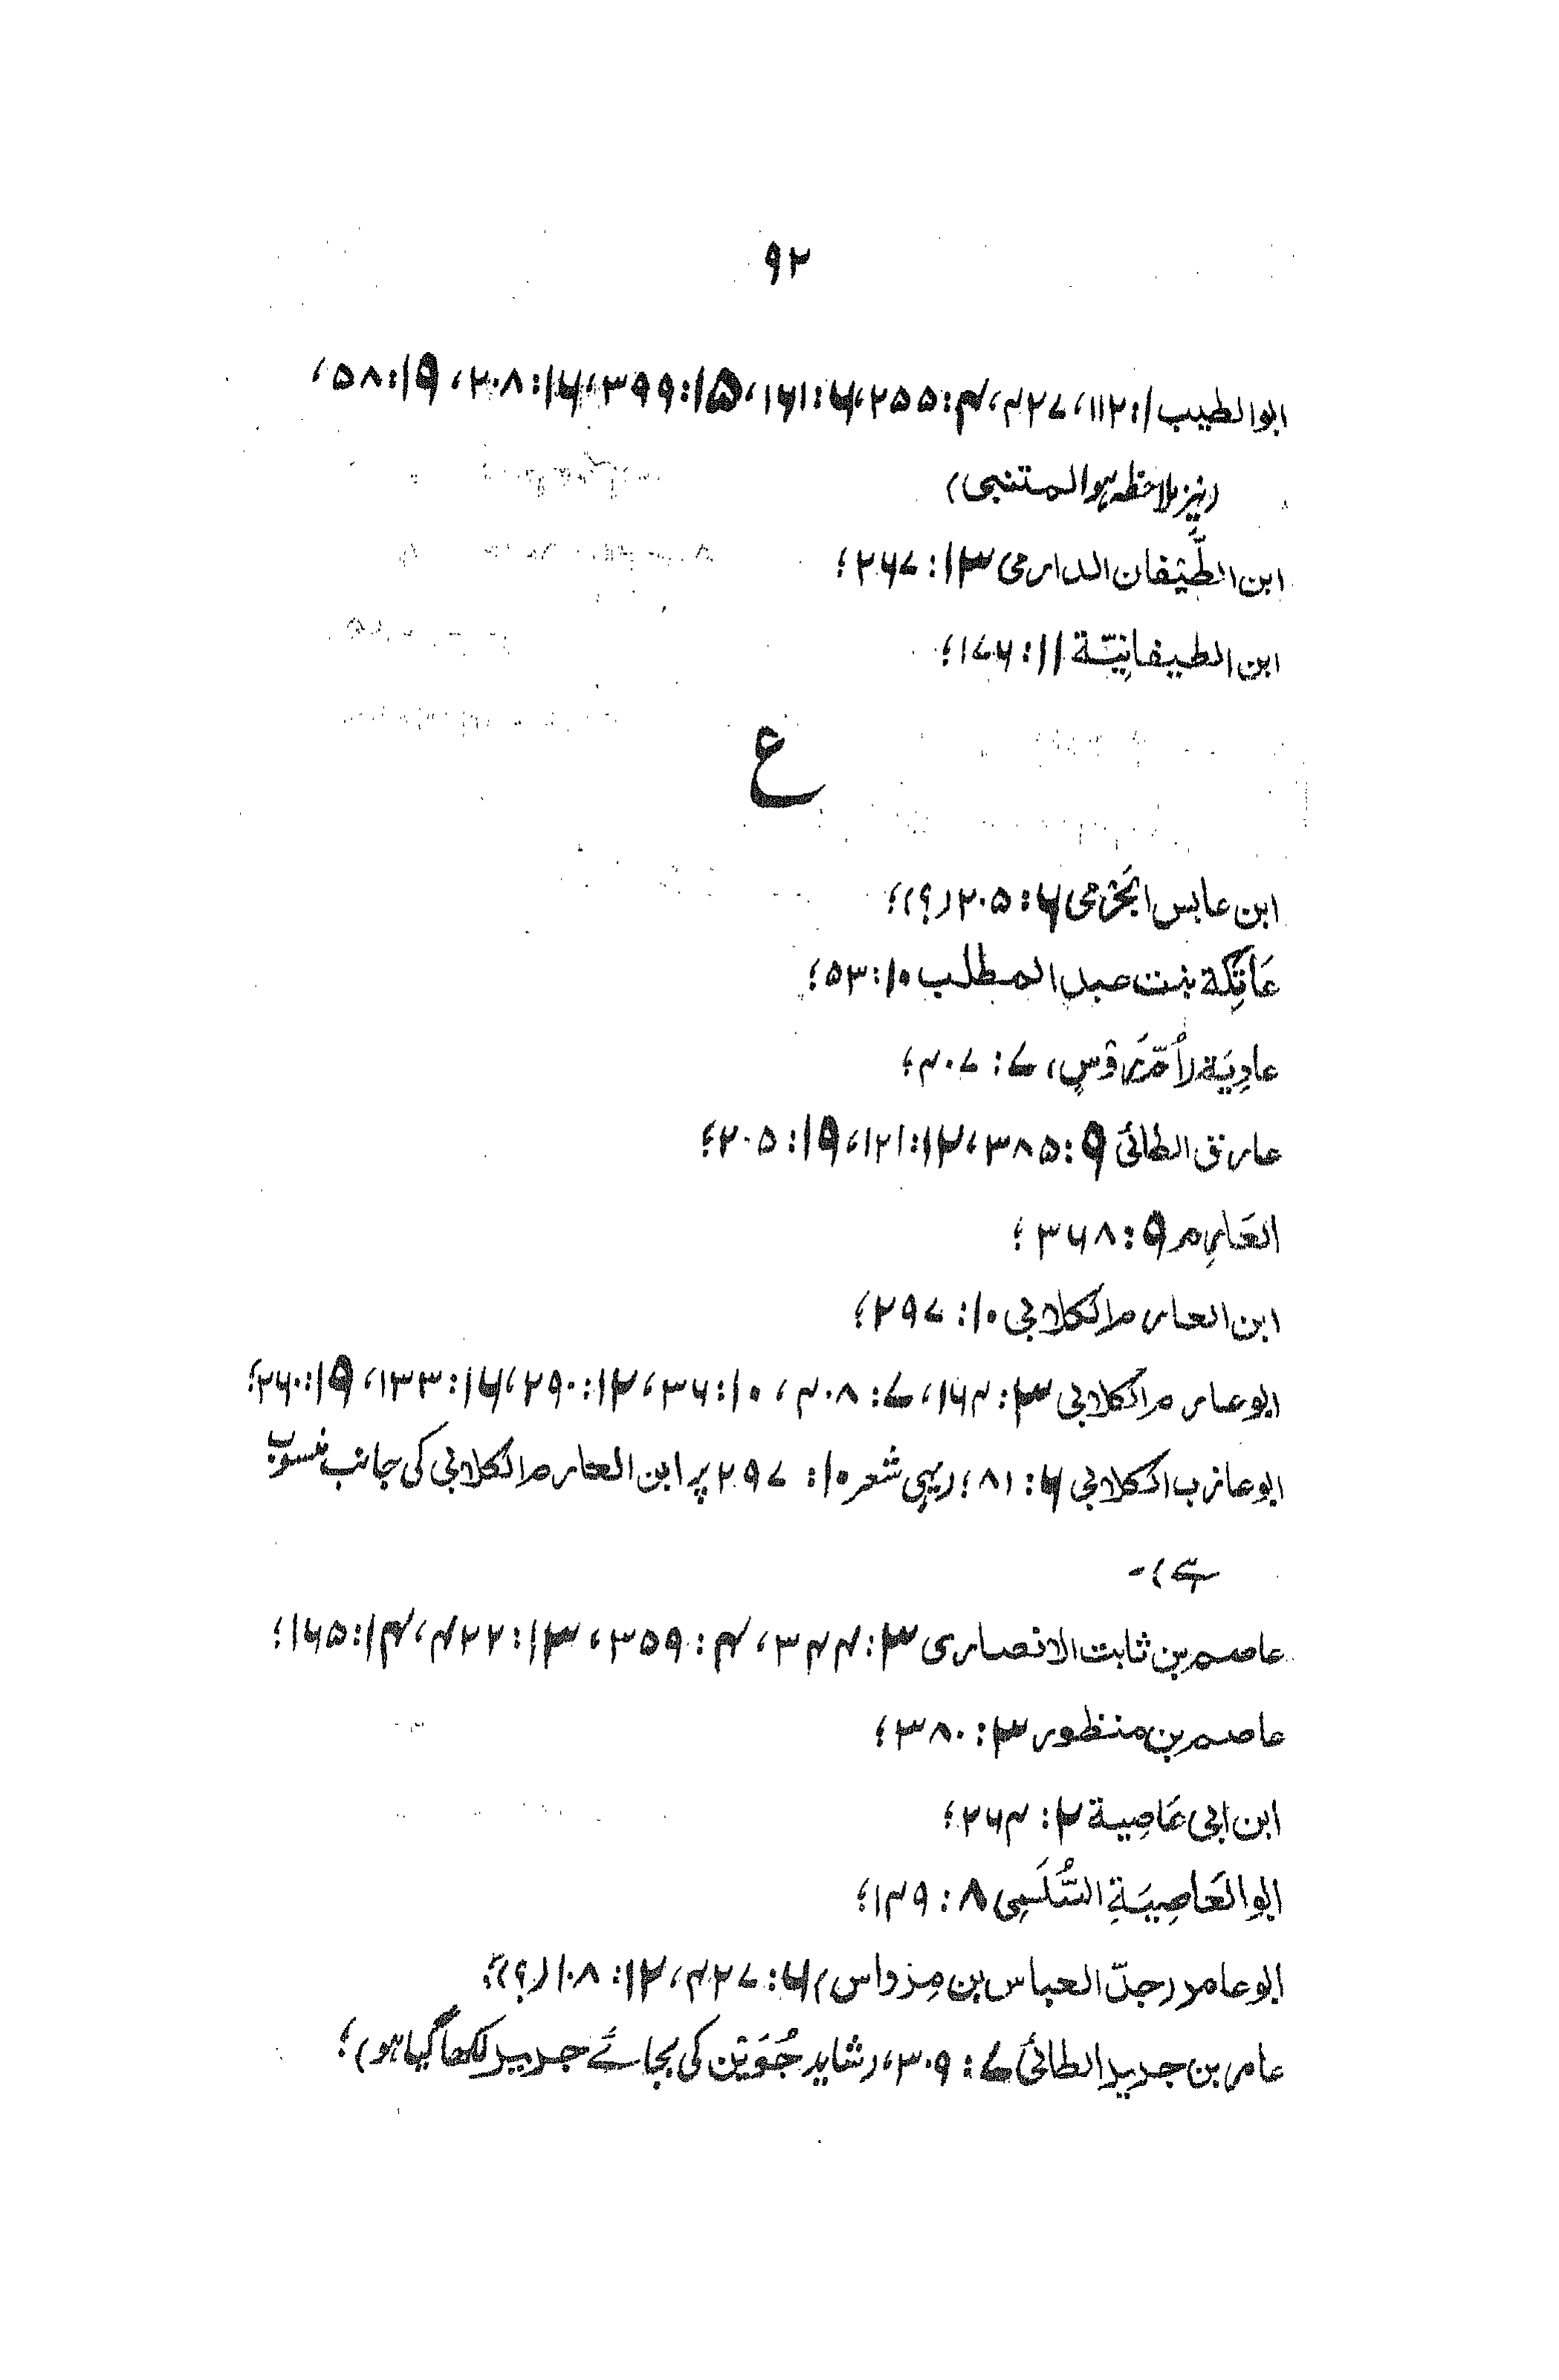 ۹۲
ابو الطیب ۱: ۱۱۲، ۴۲۷، ۴: ۲۵۵، ۶: ۱۶۱، ۱۵: ۳۹۹، ۱۶: ۲۰۸، ۱۹: ۵۸،
(نیز ملاحظہ ہو المتنبی)
ابن الطَّیِّفان الدارمی ۱۳: ۲۶۷؛
ابن الطیفانِیّة ۱۱: ۱۷۶؛
ع
ابن عابس الجَرْمی ۶: ۲۰۵ (؟)؛
عَاتِکَة بنت عبد المطلب ۱۰: ۵۳؛
عادِیَة (أُمّ رَوْسٍ) ۷: ۴۰۷؛
عارق الطائی ۹: ۳۸۵، ۱۲: ۱۲۱، ۱۹: ۲۰۵؛
العَارِم ۹: ۳۶۸؛
ابن العارم الکلابی ۱۰: ۲۹۷؛
ابو عارم الکلابی ۳: ۱۶۴، ۷: ۴۰۸، ۱۰: ۳۶، ۱۲: ۲۹۰، ۱۶: ۱۳۳، ۱۹: ۲۶۰؛
ابو عازب الکلابی ۶: ۸۱؛ (یہی شعر ۱۰: ۲۹۷ پر ابن العارم الکلابی کی جانب منسوب
ہے)۔
عاصم بن ثابت الانصاری ۳: ۳۴۴، ۴: ۳۵۹، ۱۳: ۴۲۲، ۱۴: ۱۶۵؛
عاصم بن منظور ۳: ۳۸۰؛
ابن ابی عَاصِیة ۲: ۲۶۴؛
ابو العَاصِیَةِ السُّلَمِی ۸: ۱۴۹؛
ابو عامر (جدّ العباس بن مِرْداس) ۶: ۴۲۷، ۱۲: ۱۰۸ (؟)؛
عامر بن جدید الطائی ۷: ۳۰۹، (شاید جُوَیْن کی بجائے جدید لکھا گیا ہو)؛